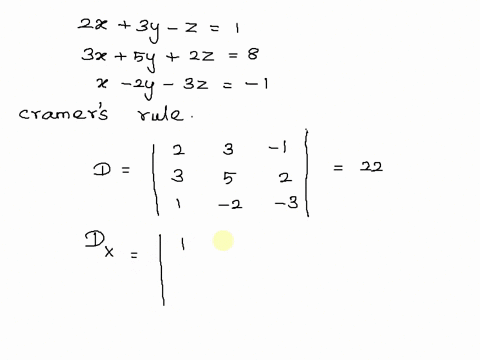 2x + 3y - z = 1
3x + 5y + 2z = 8
x - 2y - 3z = -1
cramer's rule.
D = | 2 3 -1 |
| 3 5 2 | = 22
| 1 -2 -3 |
Dx = | 1